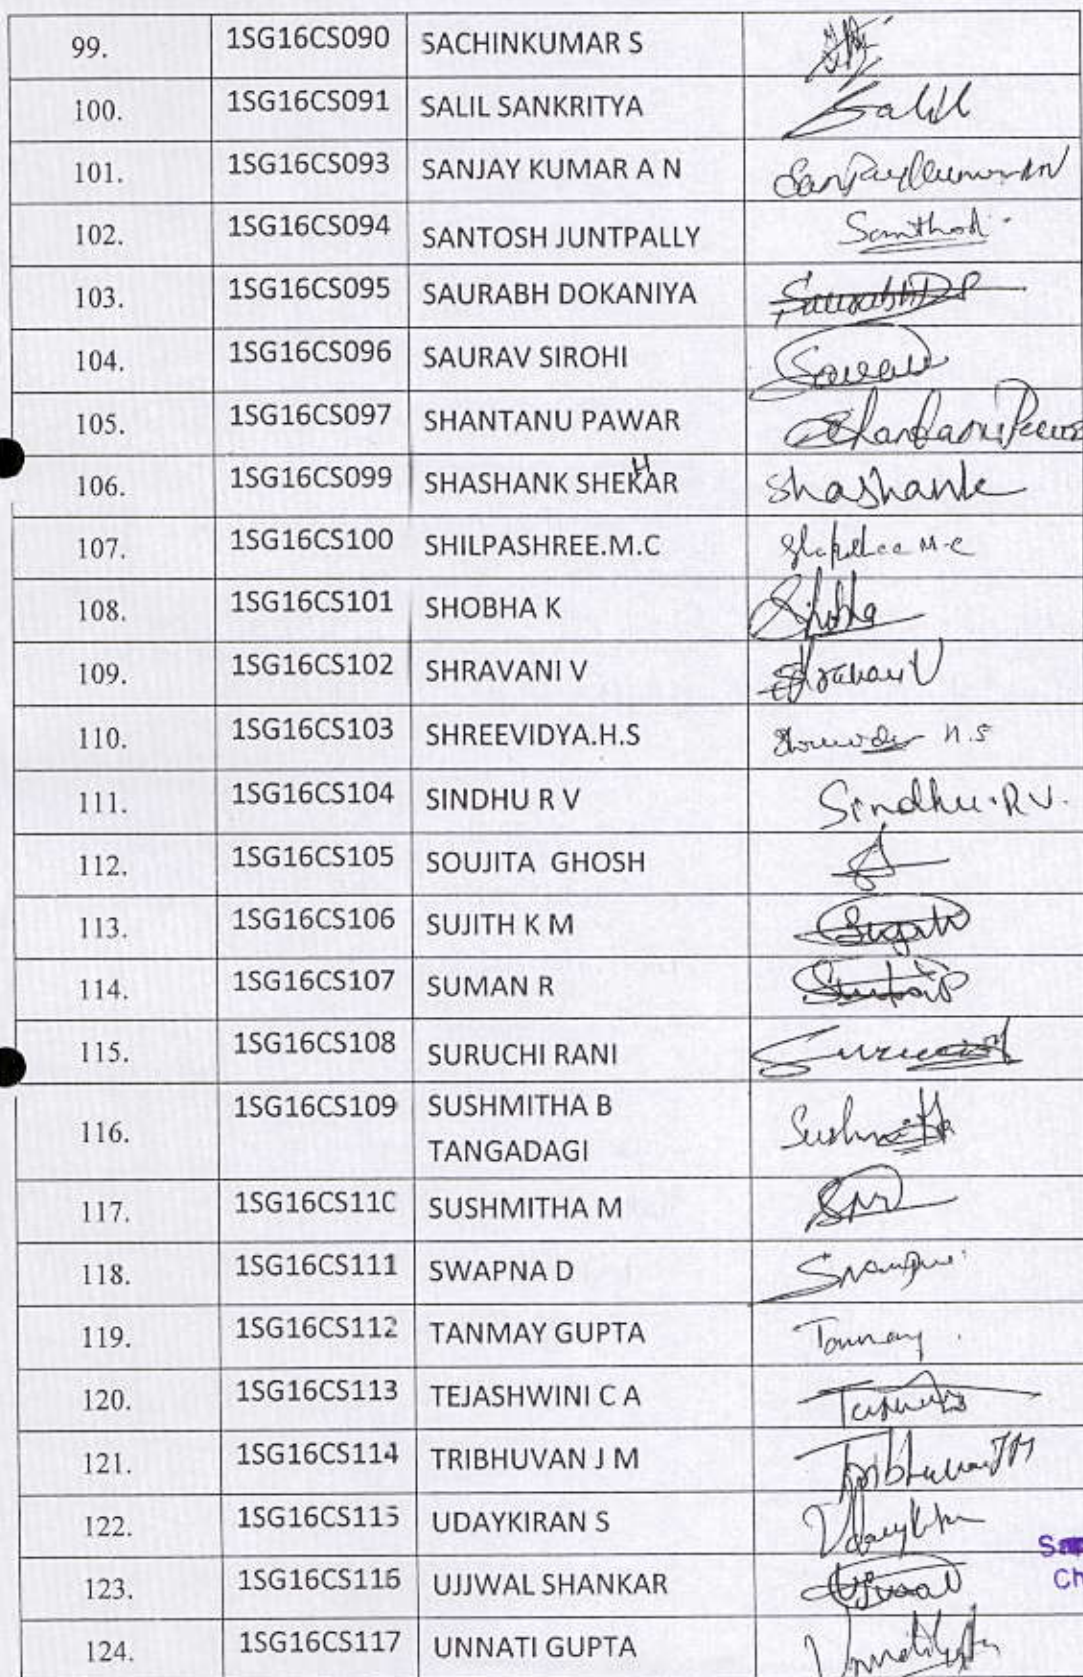 99. 1SG16CS090 SACHINKUMAR S
100. 1SG16CS091 SALIL SANKRITYA Salil
101. 1SG16CS093 SANJAY KUMAR A N
102. 1SG16CS094 SANTOSH JUNTPALLY
103. 1SG16CS095 SAURABH DOKANIYA
104. 1SG16CS096 SAURAV SIROHI
105. 1SG16CS097 SHANTANU PAWAR
H
106. 1SG16CS099 SHASHANK SHEKAR Shashank
107. 1SG16CS100 SHILPASHREE.M.C
108. 1SG16CS101 SHOBHA K Shobha
109. 1SG16CS102 SHRAVANI V
110. 1SG16CS103 SHREEVIDYA.H.S H.S
111. 1SG16CS104 SINDHU R V Sindhu.R V.
112. 1SG16CS105 SOUJITA GHOSH
113. 1SG16CS106 SUJITH K M
114. 1SG16CS107 SUMAN R
115. 1SG16CS108 SURUCHI RANI
116. 1SG16CS109 SUSHMITHA B Sushmitha
TANGADAGI
117. 1SG16CS11C SUSHMITHA M
118. 1SG16CS111 SWAPNA D
119. 1SG16CS112 TANMAY GUPTA Tanmay.
120. 1SG16CS113 TEJASHWINI C A
121. 1SG16CS114 TRIBHUVAN J M Tribhuvan J M
122. 1SG16CS115 UDAYKIRAN S
123. 1SG16CS116 UJJWAL SHANKAR
Ch
124. 1SG16CS117 UNNATI GUPTA